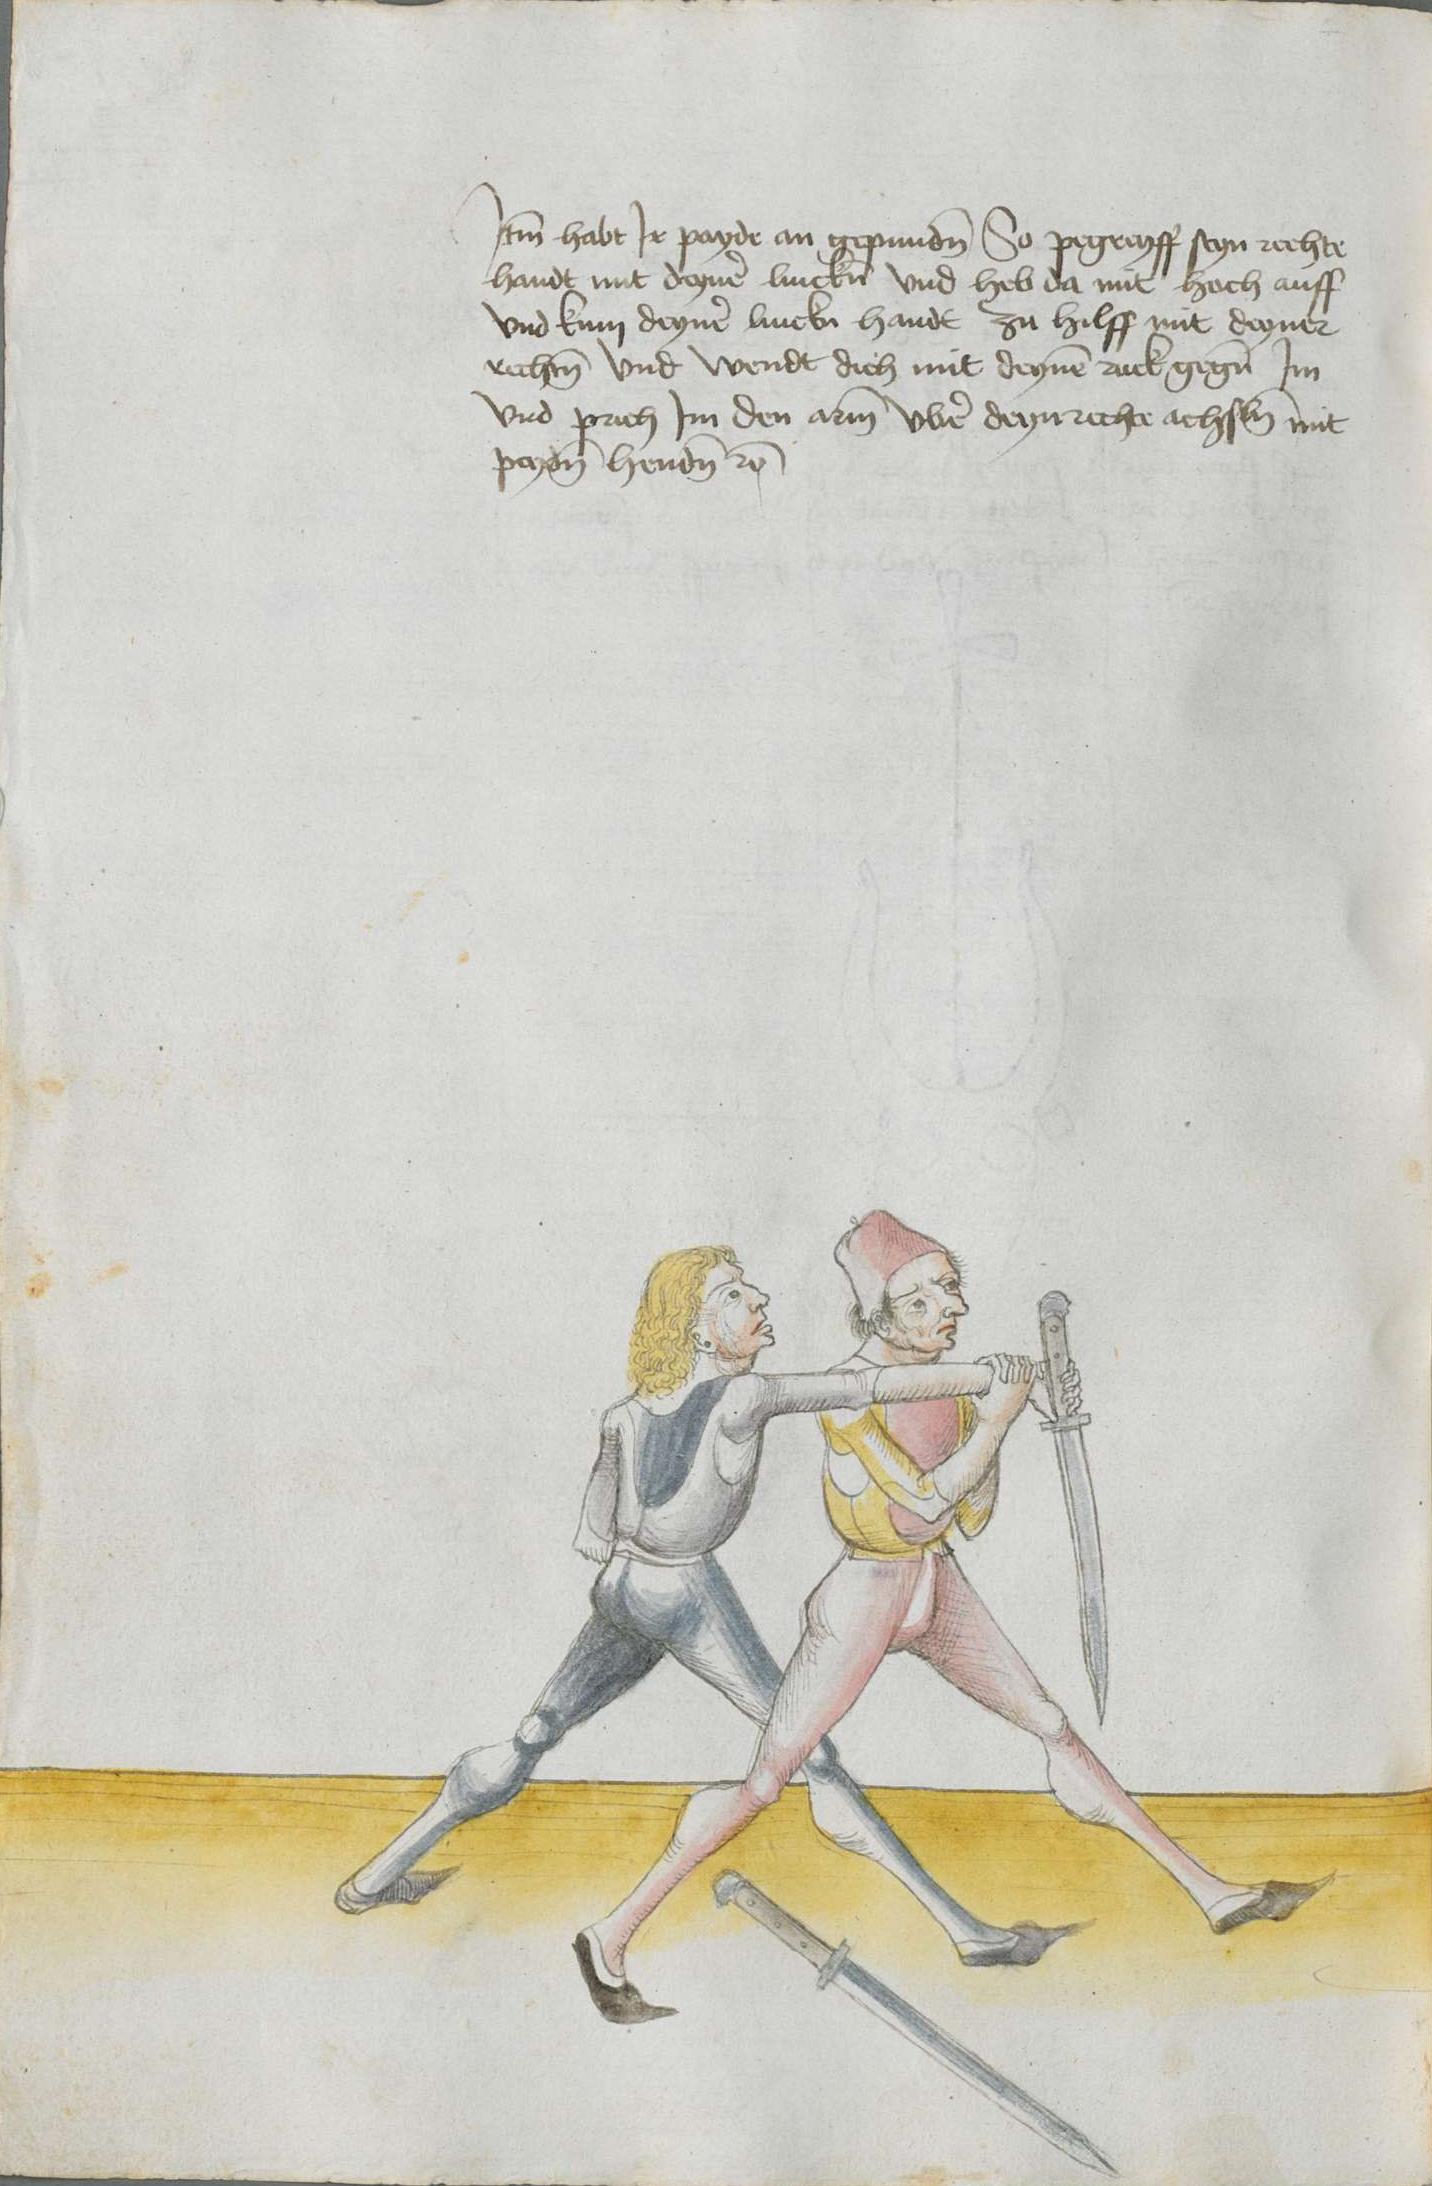 Itm̄ habt Ir payde an gepundn̄ So pegreyff seyn rechte
handt mit deyner̄ linckn̄ vnd heb da mit hoch auff
vnd kum deyner̄ linckn handt zu hilff mit deyner
rechtn̄ vnd wendt dich mit deynē ruck gegn̄ Im
vnd prich Im den arm̄ vber̄ deyn rechte achsln̄ mit
paydn̄ hendn̄ rc̄